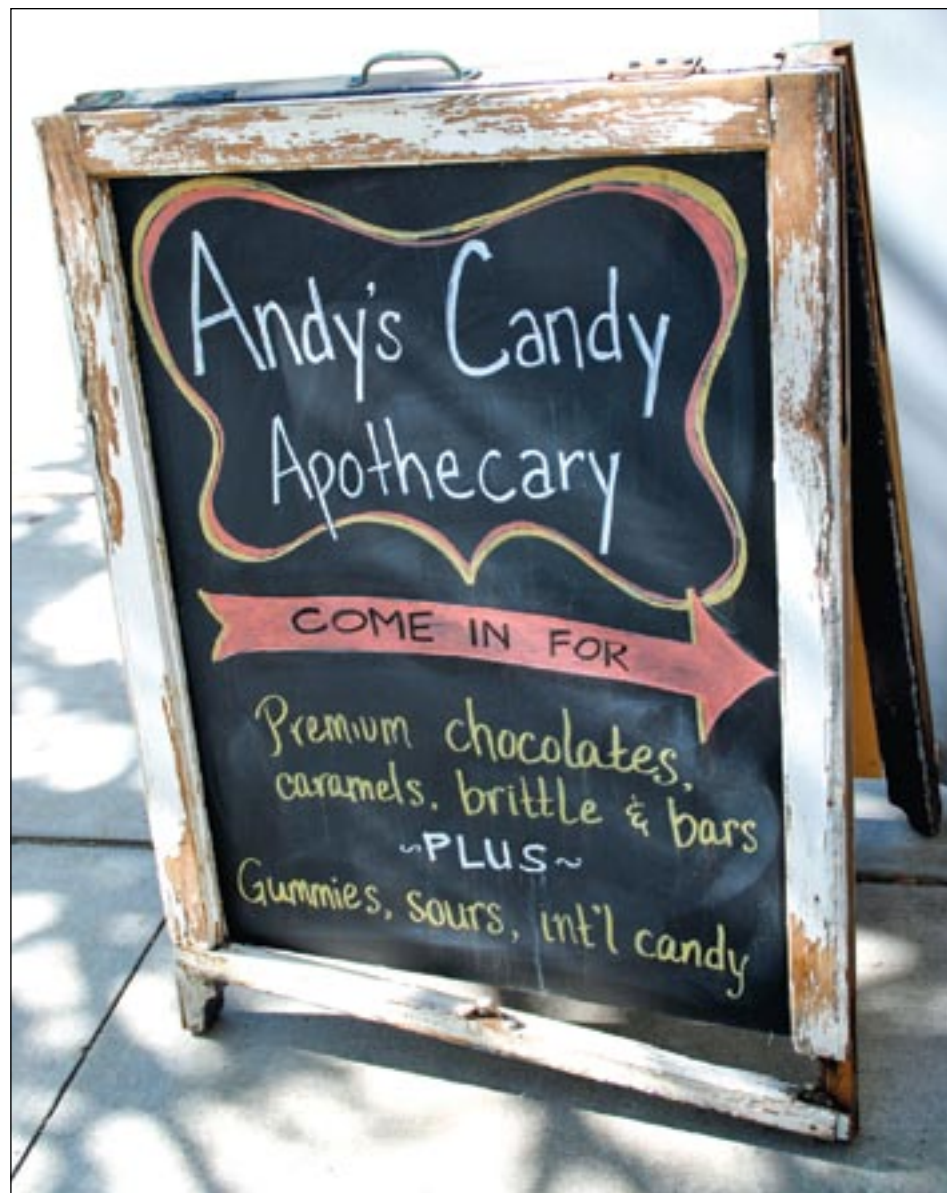 Andy's Candy
Apothecary
COME IN FOR
Premium chocolates,
caramels, brittle & bars
~PLUS~
Gummies, sours, int'l candy